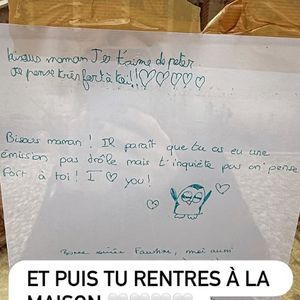 bisous maman J'es t'aime de peter
Je pense très fort à toi!!♡♡♡♡♡
Bisous maman ! Il paraît que tu as eu une
émission pas drôle mais t'inquiète pas on pense
fort à toi ! I ♡ you!
Bonne soirée Faustine, moi aussi
ET PUIS TU RENTRES À LA
MAISON 🤍🤍🤍🤍🤍🤍